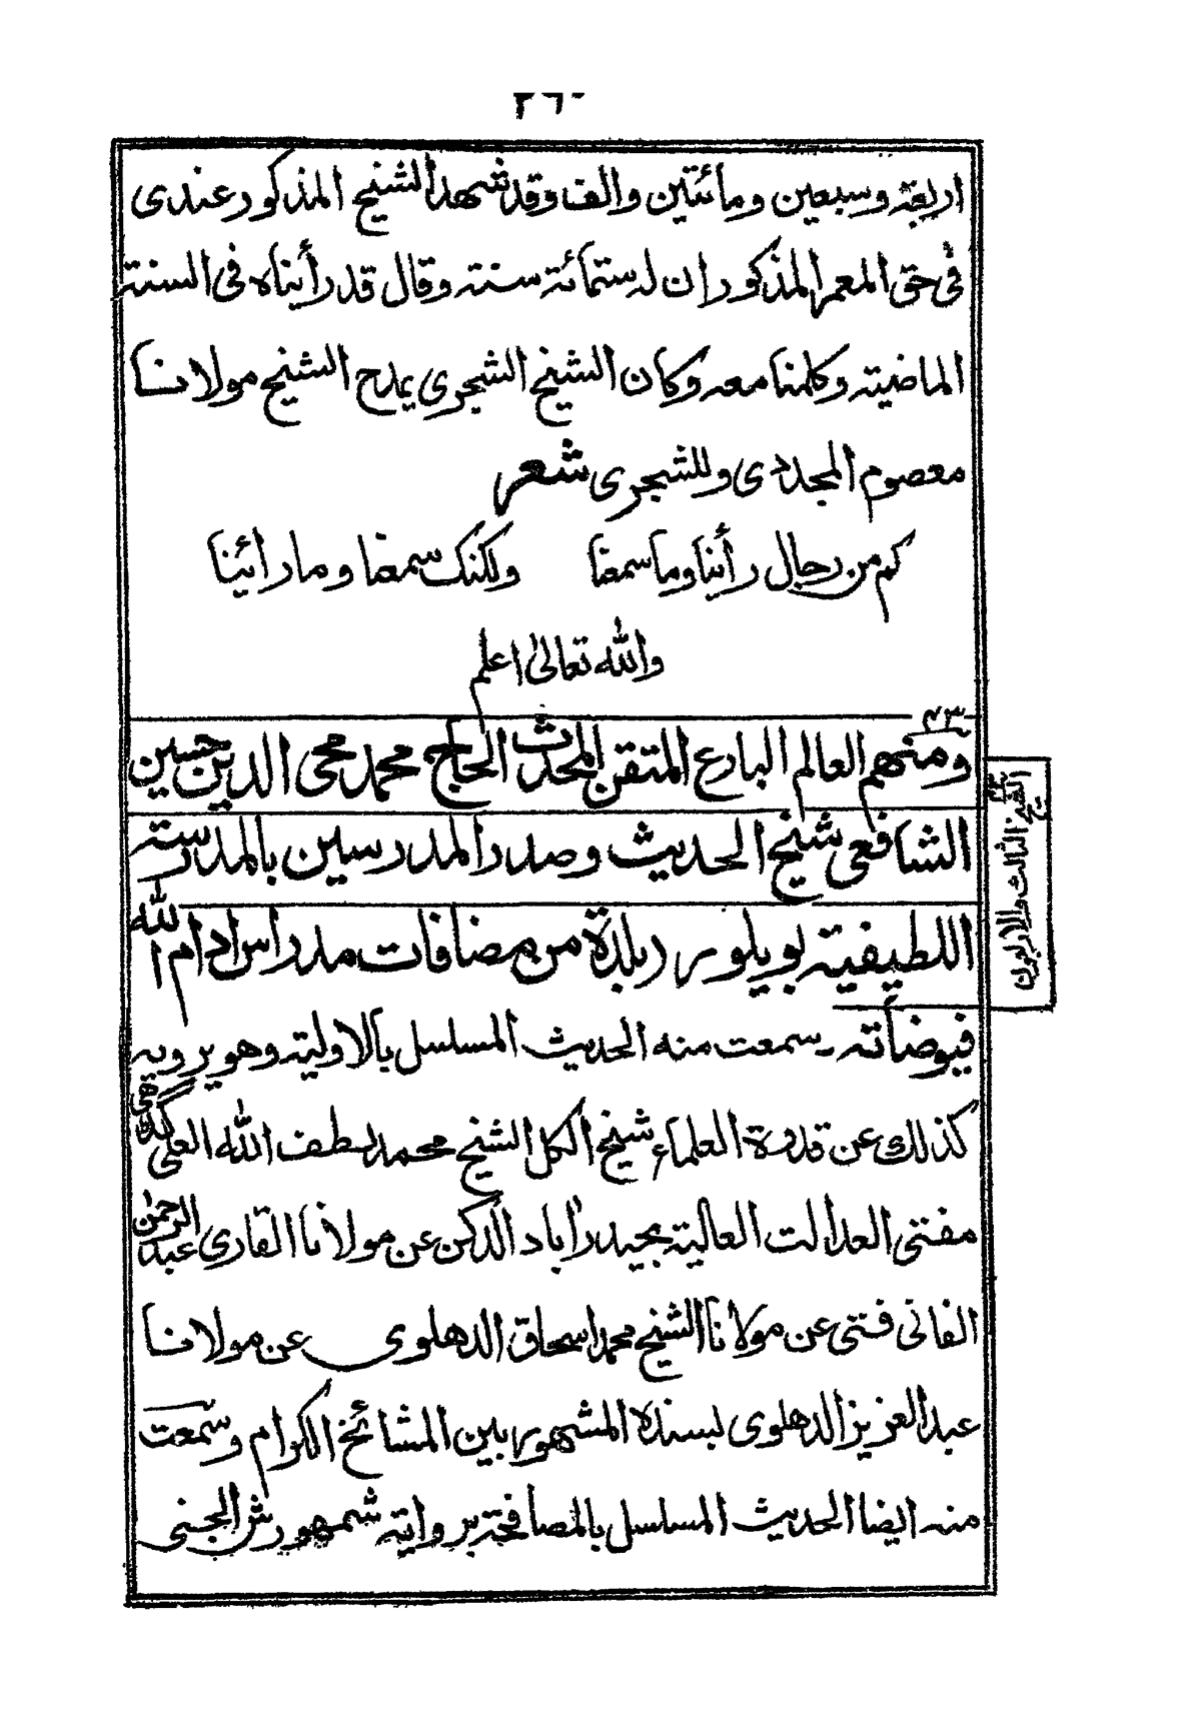 ٢٦٠
اربعة وسبعين ومائتين والف وقد شهد الشيخ المذكور عندى
فى حق المعمر المذكور ان له ستمائة سنة وقال قد رأيناه فى السنة
الماضية وكلمنا معه وكان الشيخ الشجرى يمدح الشيخ مولانا
معصوم المجددى وللشجرى شعر
كم من رجال رأينا وما سمعنا ولكنك سمعنا وما رائينا
والله تعالى اعلم
٤٣
ومنهم العالم البارع المتقن المحدث الحاج محمد محى الدين حسين
الشافعى شيخ الحديث وصدر المدرسين بالمدرسة
اللطيفية بويلور (بلدة من مضافات مدراس) ادام الله
فيوضاته ـ سمعت منه الحديث المسلسل بالاولية وهو يرويه
كذلك عن قدوة العلماء شيخ الكل الشيخ محمد لطف الله العلى گڈهى
مفتى العدالت العالية بحيدرآباد الدكن عن مولانا القارى عبد الرحمن
الفانى فتى عن مولانا الشيخ محمد اسحاق الدهلوى عن مولانا
عبد العزيز الدهلوى بسنده المشهور بين المشائخ الكرام وسمعت
منه ايضا الحديث المسلسل بالمصافحة برواية شمهورش الجنى
الشيخ الثالث والاربعون